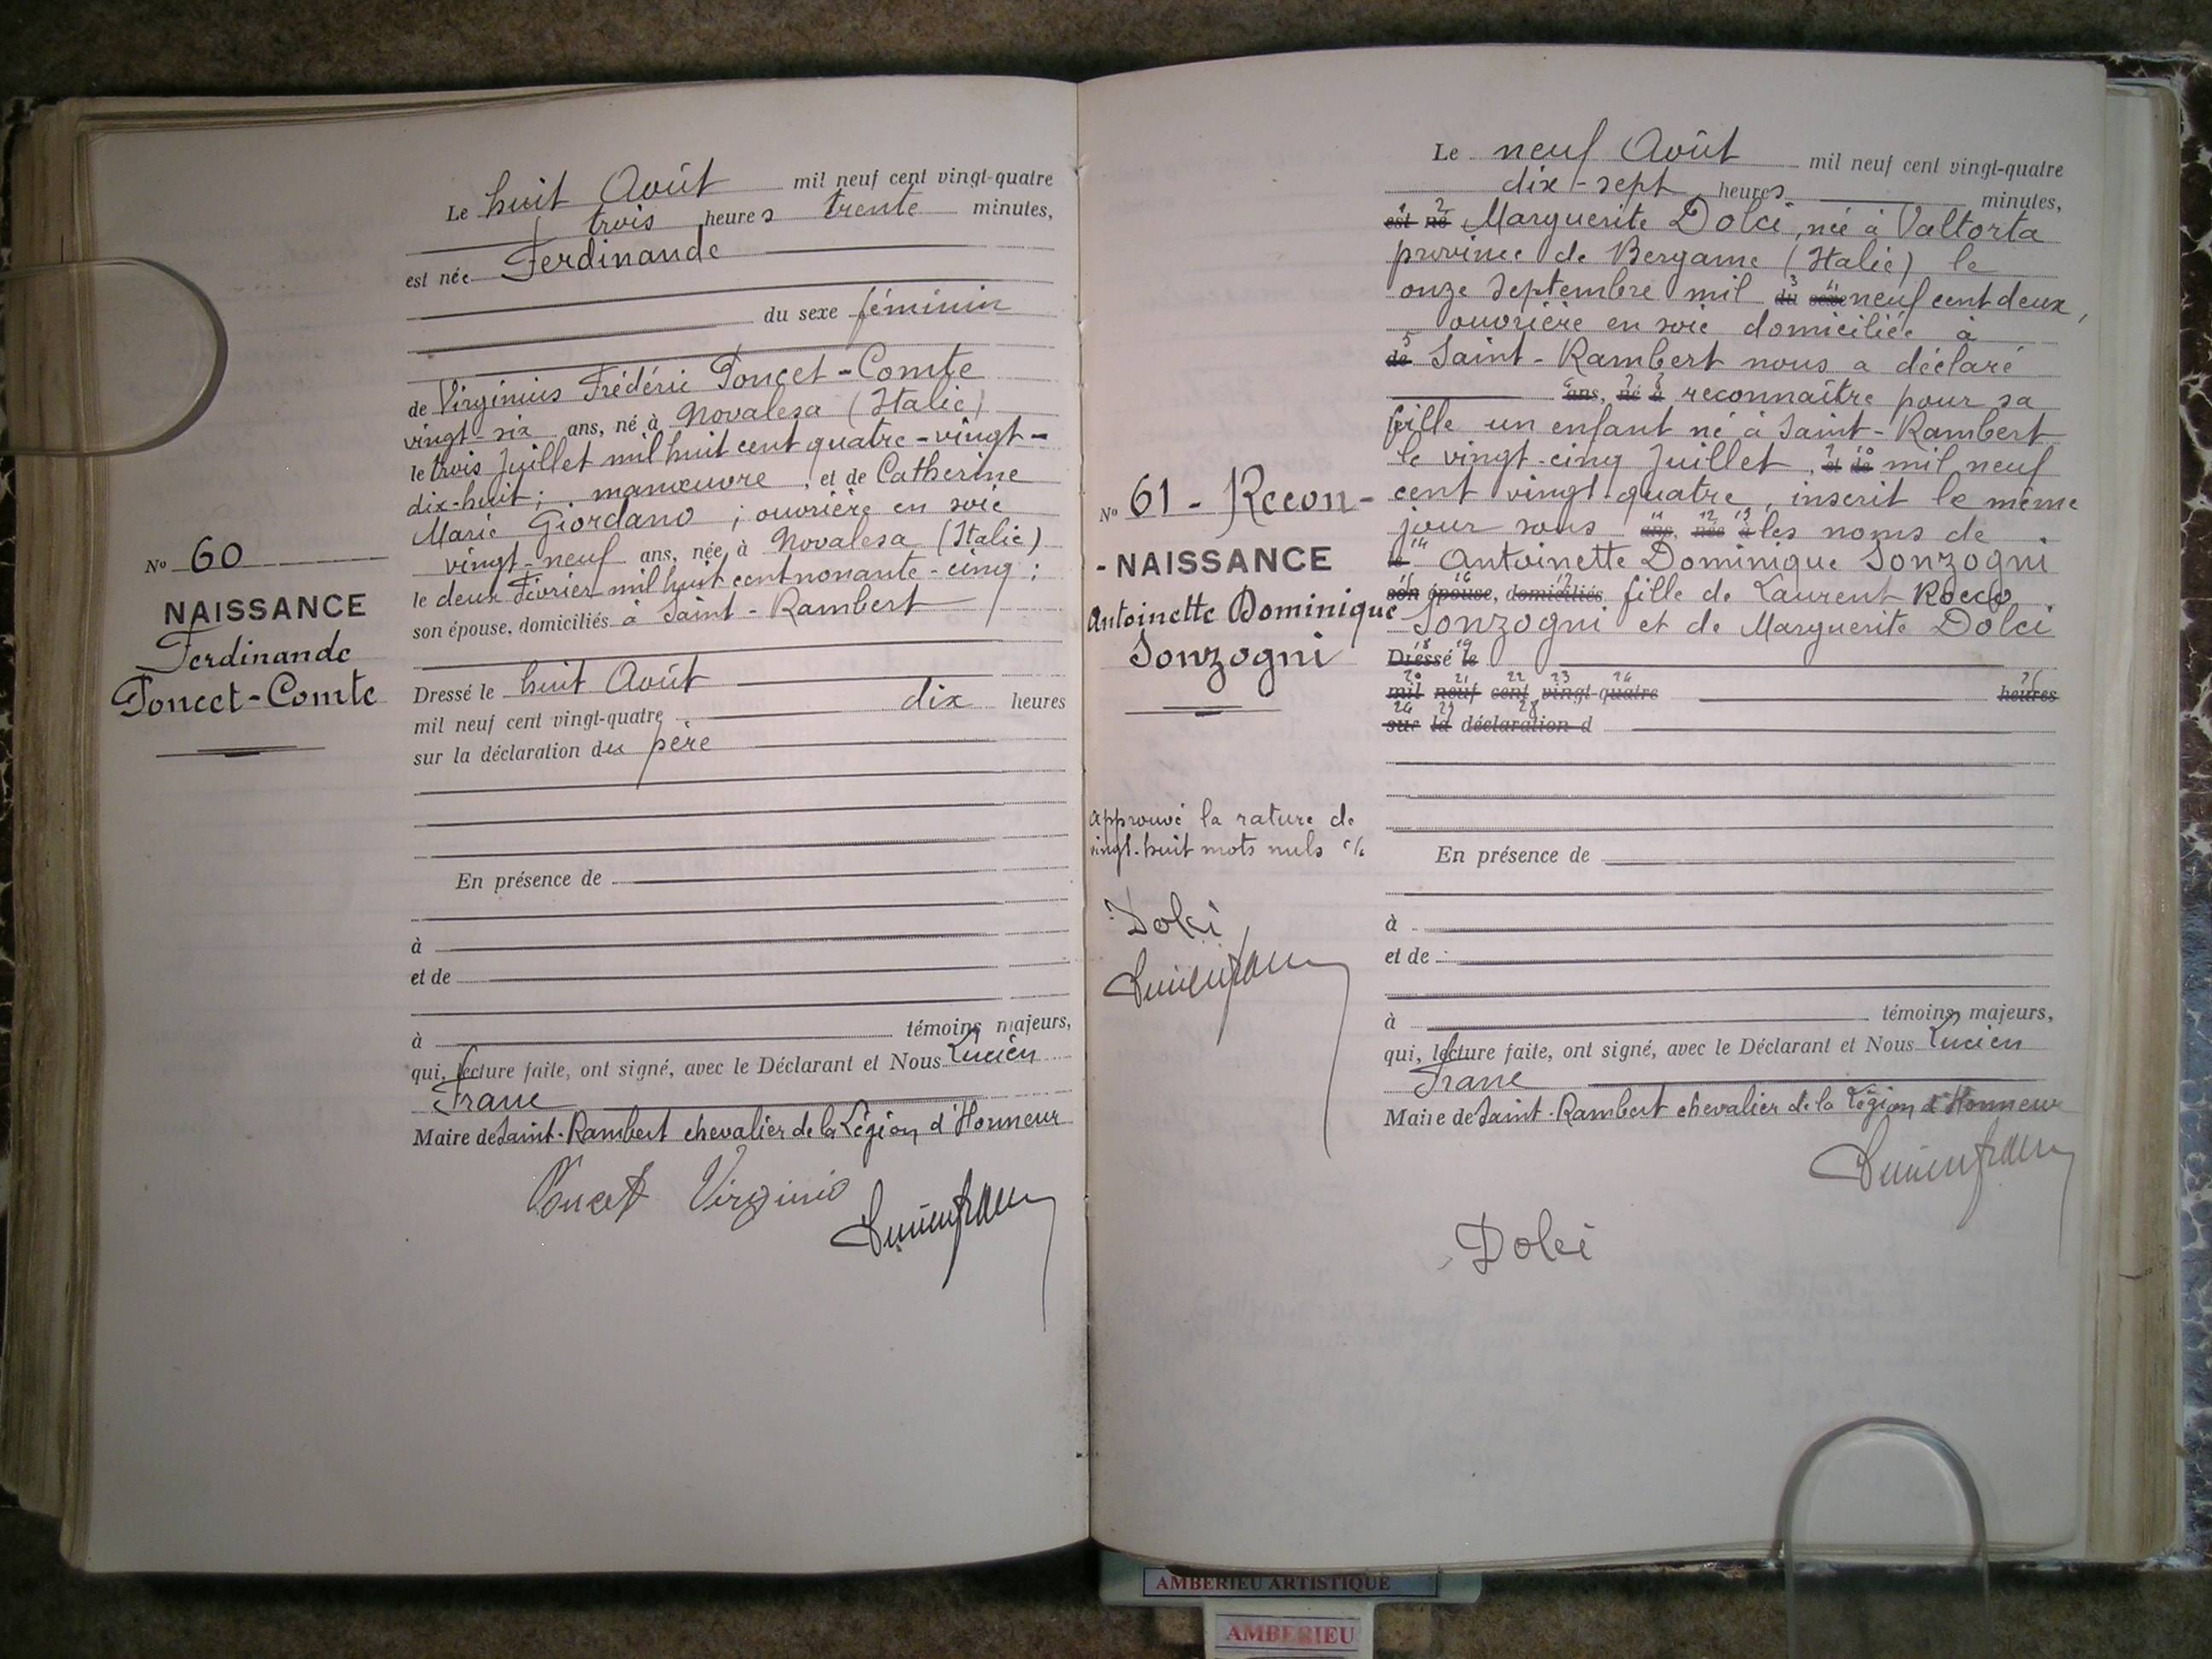 Le huit Août mil neuf cent vingt-quatre
trois heures trente minutes,
est née Ferdinande
du sexe féminin
de Virginius Frédéric Poncet-Comte
vingt-six ans, né à Novalesa (Italie)
le trois Juillet mil huit cent quatre-vingt-
dix-huit ; manœuvre , et de Catherine
Marie Giordano ; ouvrière en soie
vingt-neuf ans, née à Novalesa (Italie)
le deux Février mil huit cent nonante-cinq ;
son épouse, domiciliés à Saint-Rambert
No 60
NAISSANCE
Ferdinande
Poncet-Comte
Dressé le huit Août
mil neuf cent vingt-quatre dix heures
sur la déclaration du père
En présence de
à
et de
à témoins majeurs,
qui, lecture faite, ont signé, avec le Déclarant et Nous Lucien
Franc
Maire de Saint-Rambert chevalier de la Légion d'Honneur
Poncet Virginio
Le neuf Août mil neuf cent vingt-quatre
dix-sept heures minutes,
1 2
est né Marguerite Dolci, née à Valtorta
province de Bergame (Italie) le
3 4
onze Septembre mil du sexe neuf cent deux,
ouvrière en soie domiciliée à
5
de Saint-Rambert nous a déclaré
6 7 8
ans, né à reconnaître pour sa
fille un enfant né à Saint-Rambert
9 10
le vingt-cinq Juillet, et de mil neuf
cent vingt-quatre, inscrit le même
11 12 13
jour sous ans, née à les noms de
14
le Antoinette Dominique Sonzogni
15 16 17
son épouse, domiciliés fille de Laurent Rocco
Sonzogni et de Marguerite Dolci
18 19
Dressé le
20 21 22 23 24 25
mil neuf cent vingt-quatre heures
26 27 28
sur la déclaration d
No 61 - Recon-
- NAISSANCE
Antoinette Dominique
Sonzogni
Approuvé la rature de
vingt-huit mots nuls
Dolci
En présence de
à
et de
à témoins majeurs,
qui, lecture faite, ont signé, avec le Déclarant et Nous Lucien
Franc
Maire de Saint-Rambert chevalier de la Légion d'Honneur
Dolci
AMBERIEU ARTISTIQUE
AMBERIEU